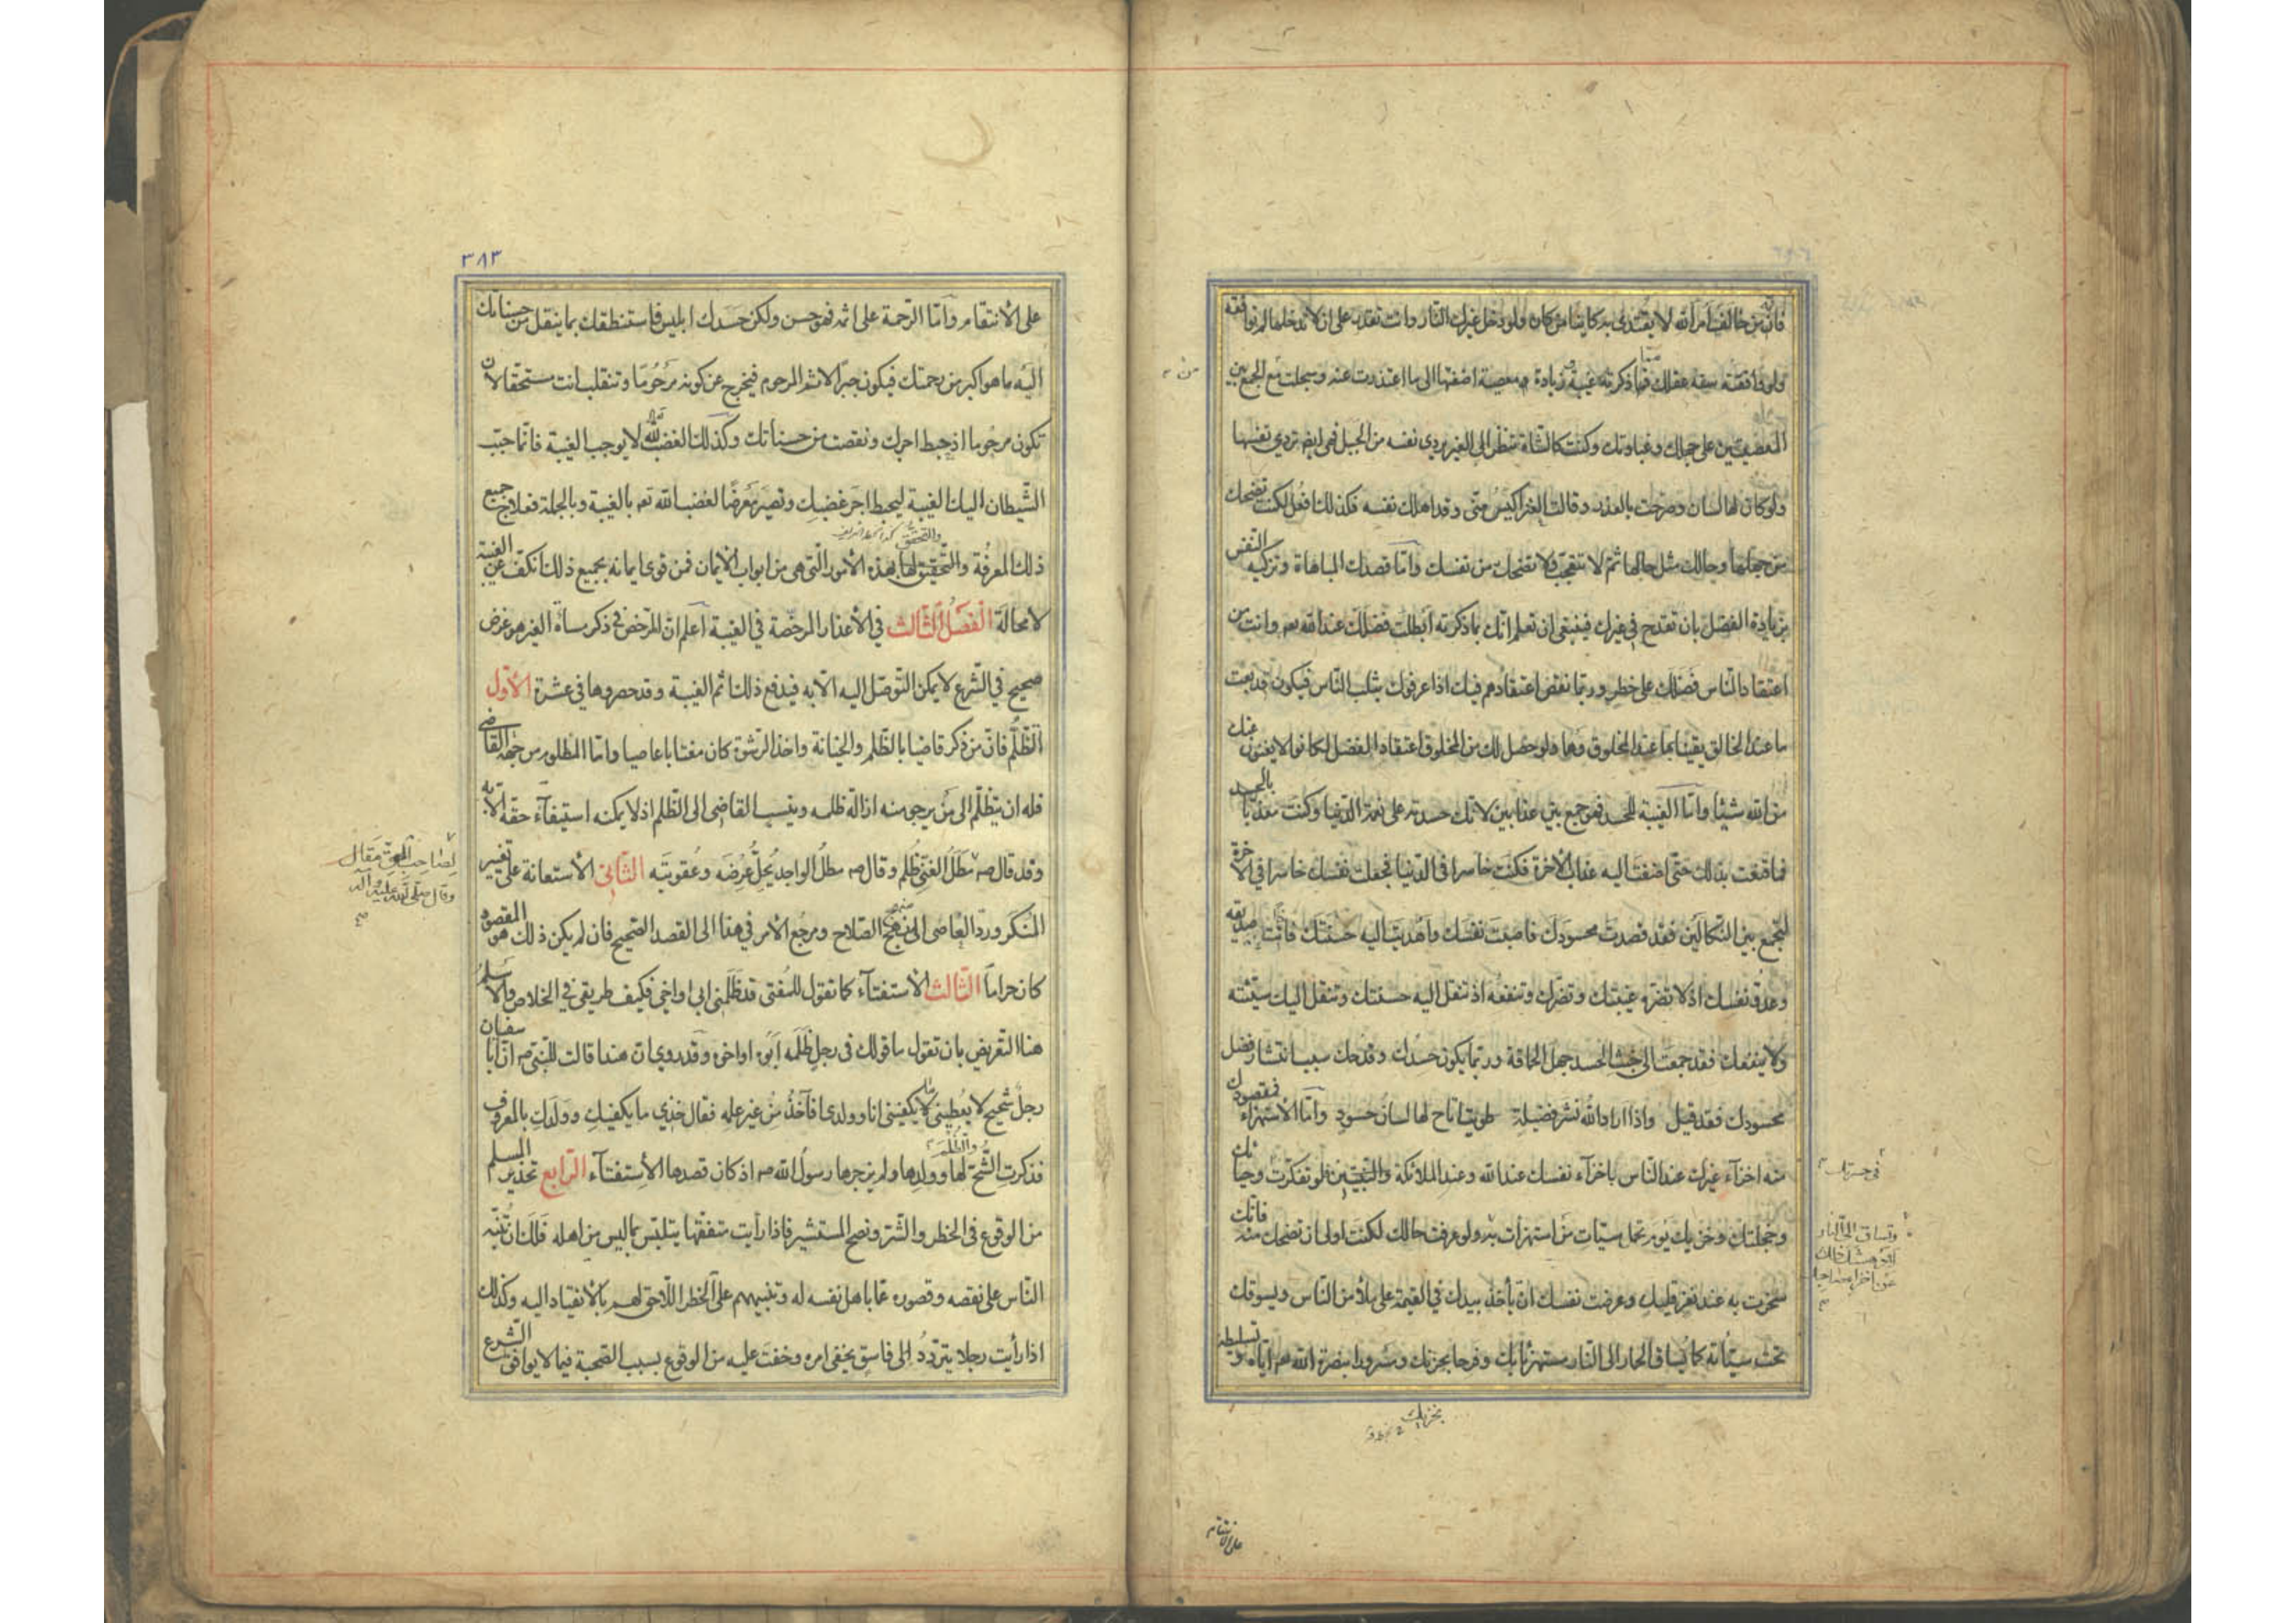 فانّ من خالف امر الله لا يقتدى به كائنا من كان ولو دخل غيرك النار وانت تقدر على ان لا تدخلها لم توافقه
ولو وافقته سفه عقلك فما ذكرته غيبة وزيادة معصية اضفتها الى ما اعتذرت عنه وسجلت مع الجمع بين
المعصيتين على جهلك وغباوتك وكنت كالشاة تنظر الى العنز يردى نفسه من الجبل فهى ايضا تردي نفسها
ولو كان لها لسان وصرحت بالعذر وقالت العنز اكيس منّى وقد اهلك نفسه فكذلك افعل لكنت تضحك
من جهلها وحالك مثل حالها ثم لا تتعجب ولا تضحك من نفسك وامّا قصدك المباهاة وتزكيه النفس
بزيادة الفضل بان تقدح في غيرك فينبغى ان تعلم انك بما ذكرته ابطلت فضلك عند الله تعم وانت من
اعتقاد الناس فضلك على خطر وربما نقص اعتقادهم فيك اذا عرفوك بثلب الناس فيكون قد بعت
ما عند الخالق يقينا بما عند المخلوق وهما ولو حصل لك من المخلوق اعتقاد الفضل لكانوا لا يغنون عنك
من الله شيئا وامّا الغيبة للحسد فهو جمع بين عذابين لانك حسدته على نعمة الدنيا وكنت معذّبا بالحسد
فما قنعت بذلك حتى اضفت اليه عذاب الاخرة فكنت خاسرا فى الدنيا فجعلت نفسك خاسرا في الاخرة
لتجمع بين النكالين فقد قصدت محسودك فاصبت نفسك واهديت اليه حسنتك فانت صديقه
وعدوّ نفسك اذ لا تضره غيبتك وتضرك وتنفعه اذ تنقل اليه حسنتك وتنقل اليك سيّئته
ولا ينفعك فقد جمعت الى خبث الحسد جهل الحماقة وربما يكون حسدك وقدحك سبب انتشار فضل
محسودك فقد قيل واذا اراد الله نشر فضيلة طويت اتاح لها لسان حسود وامّا الاستهزاء فمقصودك
منه اخزاء غيرك عند الناس باخزاء نفسك عند الله وعند الملائكة والنبيّين فلو تفكرت وحيائك
وخجلتك وخزيك يوم تحمل سيّئات من استهزأت به ولو عرفت حالك لكنت اولى ان تضحك منه فانك
سخرت به عند نفر قليل وعرضت نفسك ان يأخذ بيدك في القيمة على ملأ من الناس ويسوقك
تحت سيّئاته كما يساق الحمار الى النار مستهزئا بك وفرحا بخزيك ومسرورا بنصرة الله تعم اياه وتسليطه
في حسرتك
وتساق الى النار
على الانتقام
٣٨٣
على الانتقام وامّا الرحمة على اثمه فهو حسن ولكن حسدك ابليس فاستنطقك بما ينقل من حسناتك
اليه ما هو اكبر من رحمتك فيكون جبرا لاثم المرحوم فيخرج عن كونه مرحوما وتنقلب انت مستحقا لان
تكون مرحوما اذ حبط اجرك ونقصت من حسناتك وكذلك الغضب لله لا يوجب الغيبة فانّما حبّب
الشيطان اليك الغيبة ليحبط اجر غضبك وتصير معرضا لغضب الله تعم بالغيبة وبالجملة فعلاج جميع
ذلك المعرفة والتحقيق لها بهذه الامور التي هى من ابواب الايمان فمن قوى ايمانه بجميع ذلك انكفّ عن الغيبة
لا محالة الفصل الثالث في الاعذار المرخصة في الغيبة اعلم ان المرخص في ذكر مساءة الغير هو غرض
صحيح في الشرع لا يمكن التوصل اليه الا به فيدفع ذلك اثم الغيبة وقد حصروها في عشرة الاول
التظلّم فانّ من ذكر قاضيا بالظلم والخيانة واخذ الرشوة كان مغتابا عاصيا وامّا المظلوم من جهة القاضى
فله ان يتظلم الى من يرجو منه ازالة ظلمه وينسب القاضى الى الظلم اذ لا يمكنه استيفاء حقه الا به
وقد قال صم مطل الغنى ظلم وقال صم مطل الواجد يحلّ عرضه وعقوبته الثاني الاستعانة على تغيير
المنكر وردّ العاصى الى منهج الصلاح ومرجع الامر في هذا الى القصد الصحيح فان لم يكن ذلك هو المقصود
كان حراما الثالث الاستفتاء كما تقول للمفتى قد ظلمنى ابى او اخى فكيف طريقى في الخلاص والاسلم
هنا التعريض بان تقول ما قولك فى رجل ظلمه ابوه او اخوه وقد روي ان هندا قالت للنبى صم انّ ابا سفيان
رجل شحيح لا يعطينى ما يكفينى انا وولدى أفآخذ من غير علمه فقال خذي ما يكفيك وولدك بالمعروف
فذكرت الشح لها وولدها ولم يزجرها رسول الله صم اذ كان قصدها الاستفتاء الرابع تحذير المسلم
من الوقوع فى الخطر والشر ونصح المستشير فاذا رأيت متفقها يتلبّس بما ليس من اهله فلك ان تنبّه
الناس على نقصه وقصوره عمّا يأهل نفسه له وتنبيههم على الخطر اللاحق لهم بالانقياد اليه وكذلك
اذا رأيت رجلا يتردّد الى فاسق يخفى امره وخفت عليه من الوقوع بسبب الصحبة فيما لا يوافق الشرع
لصاحب الحق مقال
وقال صلى الله عليه وآله